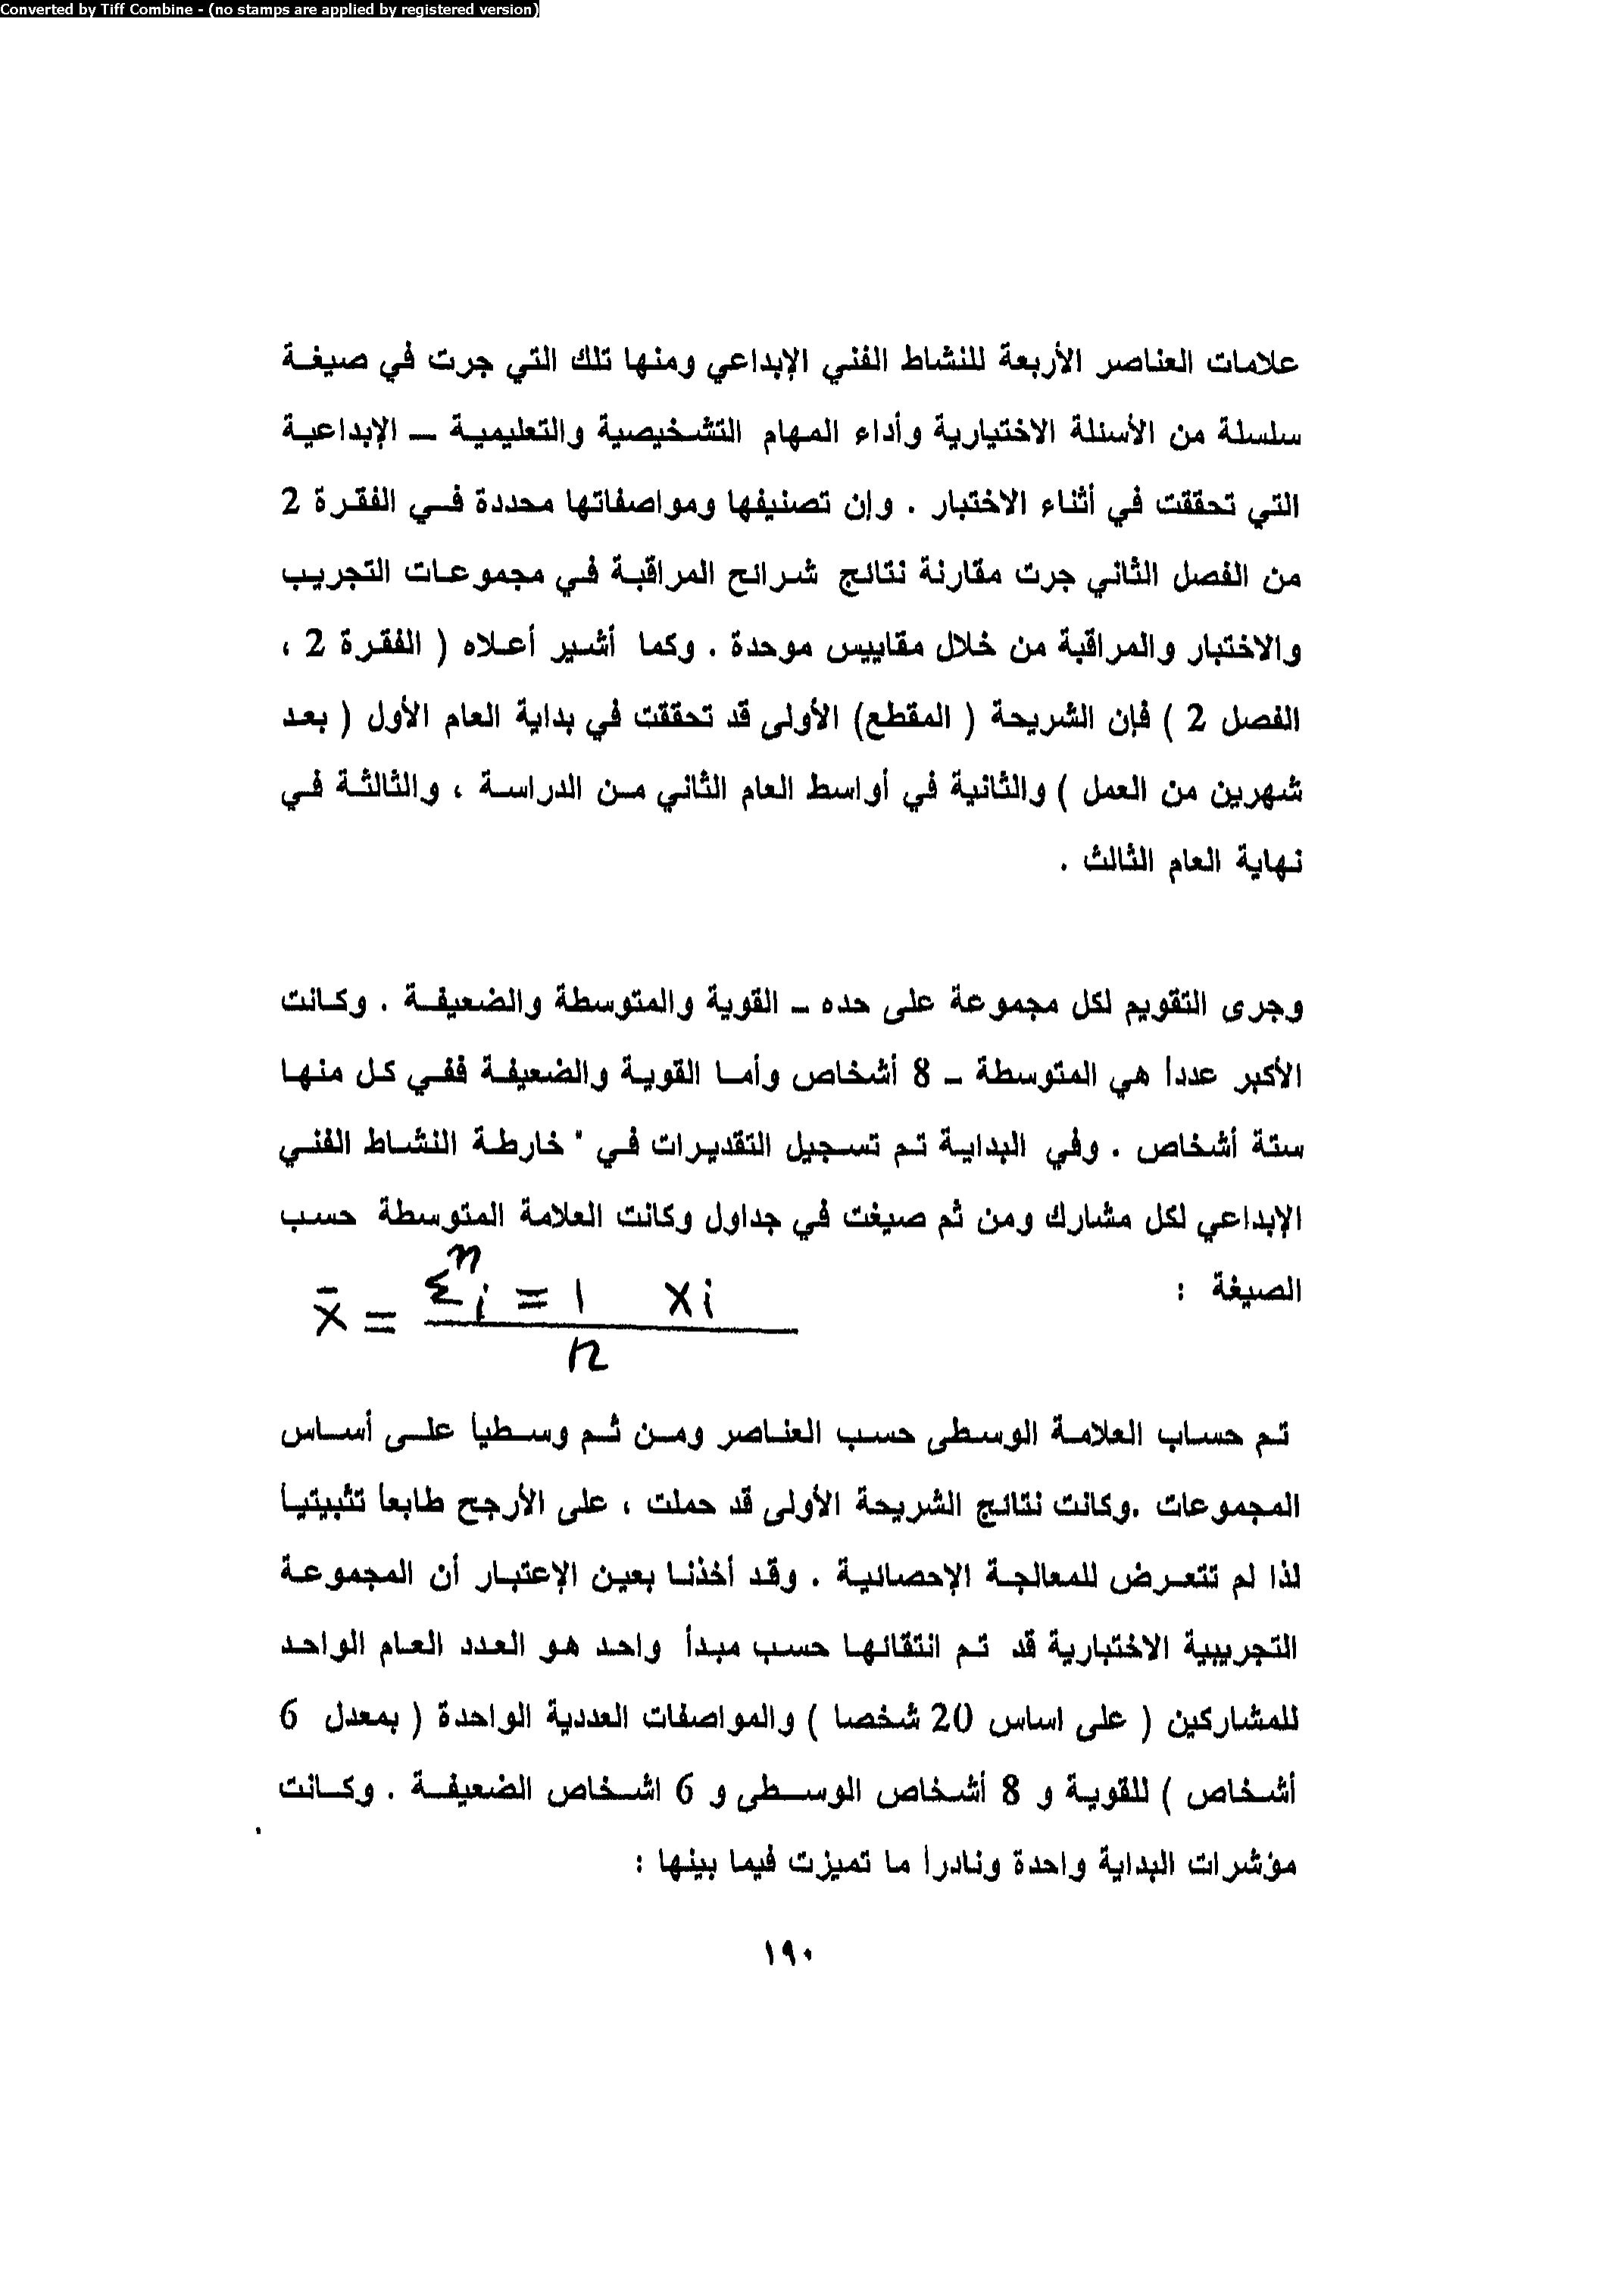 Converted by Tiff Combine - (no stamps are applied by registered version)
علامات العناصر الأربعة للنشاط الفني الإبداعي ومنها تلك التي جرت في صيغة
سلسلة من الأسئلة الاختيارية وأداء المهام التشخيصية والتعليمية – الإبداعية
التي تحققت في أثناء الاختبار . وإن تصنيفها ومواصفاتها محددة في الفقرة 2
من الفصل الثاني جرت مقارنة نتائج شرائح المراقبة في مجموعات التجريب
والاختبار والمراقبة من خلال مقاييس موحدة . وكما أشير أعلاه ( الفقرة 2 ،
الفصل 2 ) فإن الشريحة ( المقطع) الأولى قد تحققت في بداية العام الأول ( بعد
شهرين من العمل ) والثانية في أواسط العام الثاني من الدراسة ، والثالثة في
نهاية العام الثالث .
وجرى التقويم لكل مجموعة على حده – القوية والمتوسطة والضعيفة . وكانت
الأكبر عدداً هي المتوسطة – 8 أشخاص وأما القوية والضعيفة ففي كل منها
ستة أشخاص . وفي البداية تم تسجيل التقديرات في " خارطة النشاط الفني
الإبداعي لكل مشارك ومن ثم صيغت في جداول وكانت العلامة المتوسطة حسب
الصيغة :
x̄ = Σⁿi = 1 xi
n
تم حساب العلامة الوسطى حسب العناصر ومن ثم وسطياً على أساس
المجموعات .وكانت نتائج الشريحة الأولى قد حملت ، على الأرجح طابعاً تثبيتياً
لذا لم تتعرض للمعالجة الإحصائية . وقد أخذنا بعين الإعتبار أن المجموعة
التجريبية الاختبارية قد تم انتقائها حسب مبدأ واحد هو العدد العام الواحد
للمشاركين ( على اساس 20 شخصا ) والمواصفات العددية الواحدة ( بمعدل 6
أشخاص ) للقوية و 8 أشخاص الوسطى و 6 اشخاص الضعيفة . وكانت
مؤشرات البداية واحدة ونادراً ما تميزت فيما بينها :
١٩٠